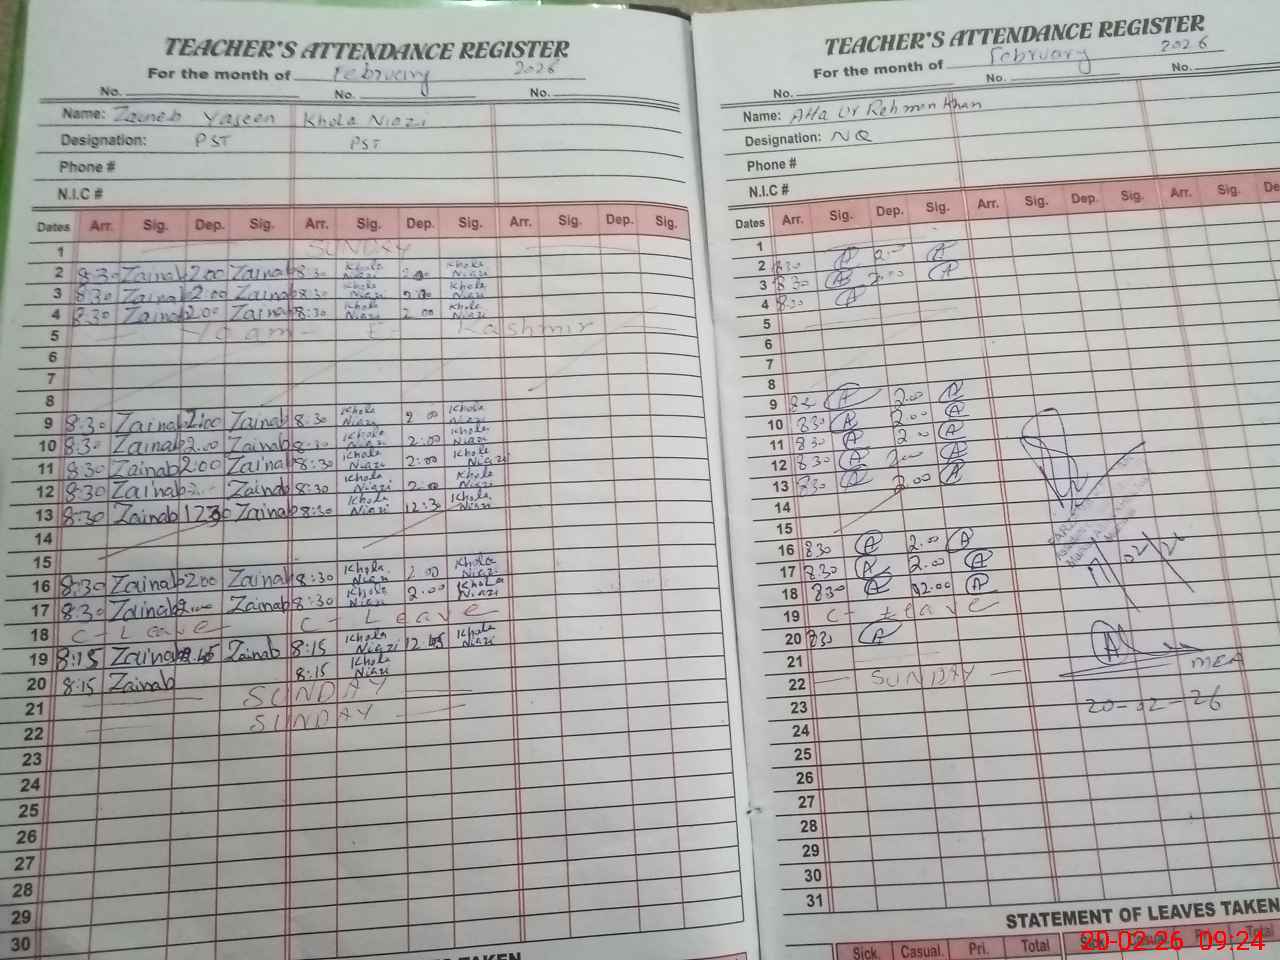 TEACHER'S ATTENDANCE REGISTER
For the month of February 2026
No. No. No.
Name: Zaineb Yaseen Khola Niazi
Designation: PST PST
Phone #
N.I.C #
Dates Arr. Sig. Dep. Sig. Arr. Sig. Dep. Sig. Arr. Sig. Dep. Sig.
1 SUNDAY
2 8:30 Zainab 2.00 Zainab 8:30 Khola Niazi 2.00 Khola Niazi
3 8:30 Zainab 2.00 Zainab 8:30 Khola Niazi 2.00 Khola Niazi
4 8:30 Zainab 2.00 Zainab 8:30 Khola Niazi 2.00 Khola Niazi
5 Yoam - E - Kashmir
6
7
8
9 8:30 Zainab 2:00 Zainab 8:30 Khola Niazi 2 00 Khola Niazi
10 8:30 Zainab 2.00 Zainab 8:30 Khola Niazi 2:00 Khola Niazi
11 8:30 Zainab 2:00 Zainab 8:30 Khola Niazi 2:00 Khola Niazi
12 8:30 Zainab Zainab 8:30 Khola Niazi 2:00 Khola Niazi
13 8:30 Zainab 12:30 Zainab 8:30 Khola Niazi 12:30 Khola Niazi
14
15
16 8:30 Zainab 2:00 Zainab 8:30 Khola Niazi 2.00 Khola Niazi
17 8:30 Zainab Zainab 8:30 Khola Niazi 2.00 Khola Niazi
18 C - Leave C - Leave
19 8:15 Zainab Zainab 8:15 Khola Niazi 12 45 Khola Niazi
20 8:15 Zainab 8:15 Khola Niazi
21 SUNDAY
22 SUNDAY
23
24
25
26
27
28
29
30
TEACHER'S ATTENDANCE REGISTER
For the month of February 2026
No. No. No.
Name: Atta Ur Rehman Khan
Designation: NQ
Phone #
N.I.C #
Dates Arr. Sig. Dep. Sig. Arr. Sig. Dep. Sig. Arr. Sig. De
1
2 830 A 2.00 A
3 830 A 2.00 A
4 830 A
5
6
7
8
9 830 A 2.00 A
10 830 A 2.00 A
11 830 A 2 00 A
12 830 A 2.00 A
13 830 A 2.00 A
14
15
16 830 A 2.00 A
17 830 A 2.00 A
18 830 A 2.00 A
19 C - Leave
20 830 A
21
22 SUNDAY
23
24
25
26
27
28
29
30
31
MEA
20-02-26
STATEMENT OF LEAVES TAKEN
Sick. Casual. Pri. Total Sick. Casual. Pri. Total
TAKEN
20-02-26 09:24